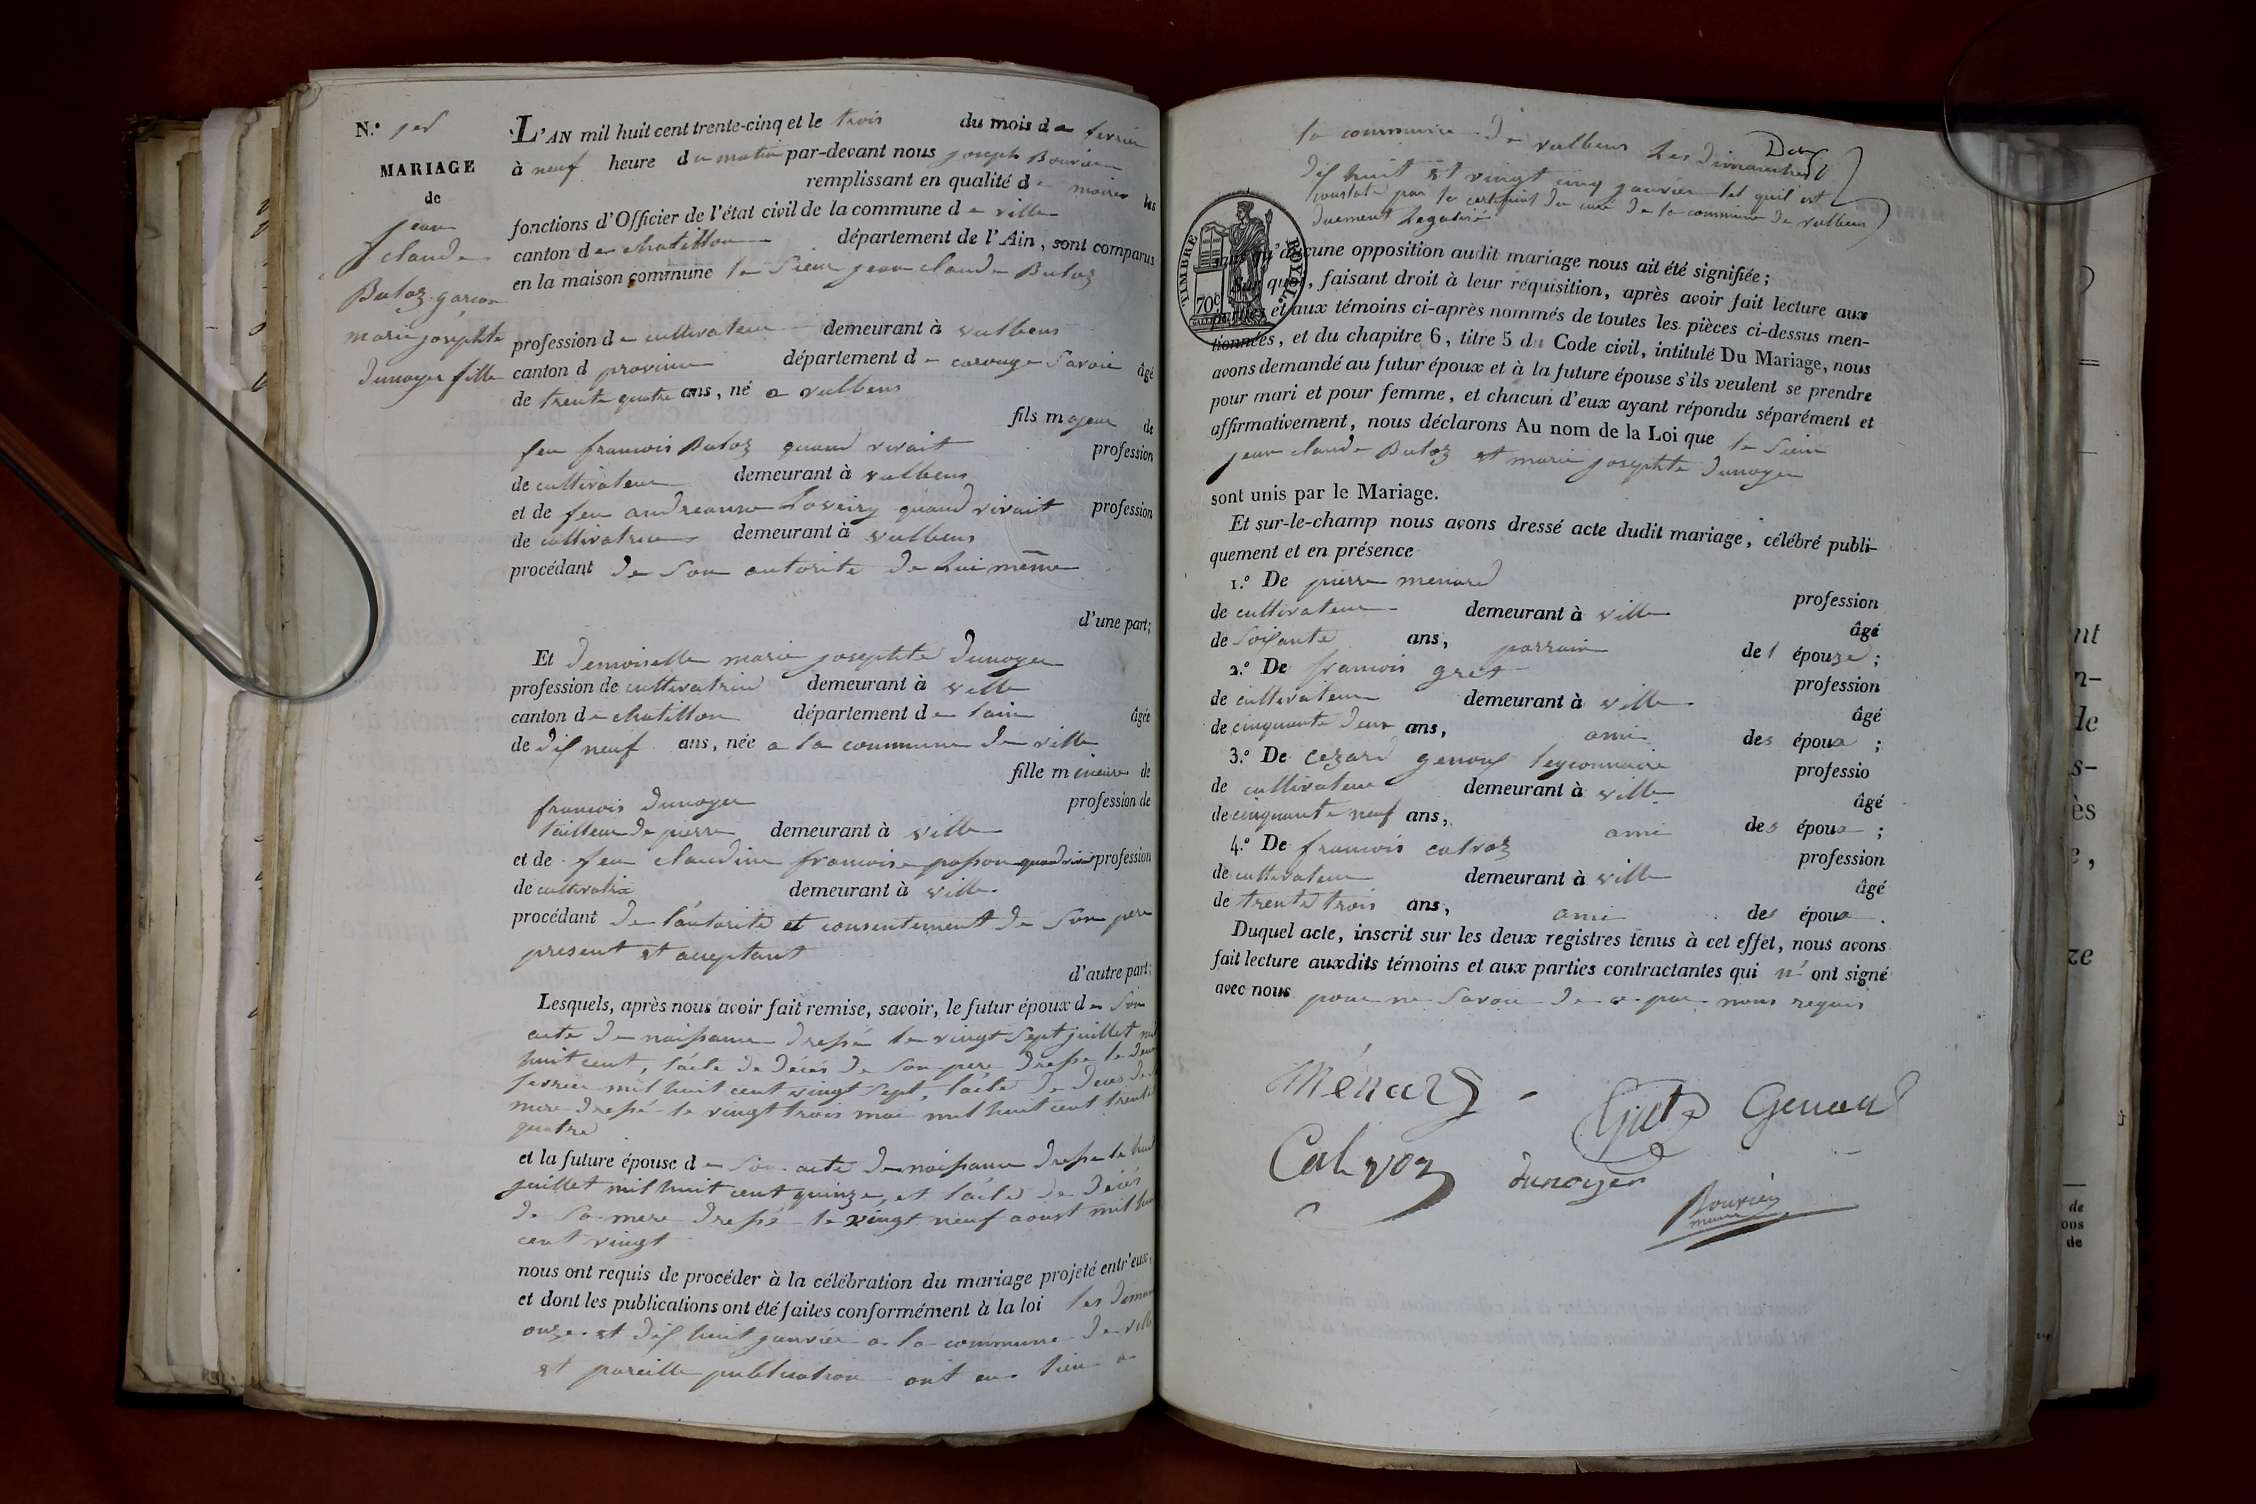 N.º 1er
MARIAGE
de
jean
claude
Buloz garcon
marie joséphte
dunoyer fille
L'AN mil huit cent trente-cinq et le trois du mois de fevrier
à neuf heure du matin par-devant nous joseph Bouvier
remplissant en qualité de maire les
fonctions d'Officier de l'état civil de la commune de ville
canton de chatillon département de l'Ain, sont comparus
en la maison commune le Sieur jean claude Buloz
profession de cultivateur demeurant à valbens
canton d province département de carouge Savoie âgé
de trente quatre ans, né a valbens
fils majeur de
feu francois Buloz quand vivait profession
de cultivateur demeurant à valbens
et de feu andreanne quand vivait profession
de cultivatrice demeurant à valbens
procédant de Son autorité de Lui même
d'une part;
Et demoiselle marie josephte dunoyer
profession de cultivatrice demeurant à ville
canton de chatillon département de lain âgée
de dix neuf ans, née a la commune de ville
fille mineure de
francois dunoyer profession de
tailleur de pierre demeurant à ville
et de feu claudine francoise passon quand vivait profession
de cultivatrice demeurant à ville
procédant de l'autorité et consentement de Son pere
present et acceptant
d'autre part;
Lesquels, après nous avoir fait remise, savoir, le futur époux de Son
acte de naissance dressé le vingt Sept juillet mil
huit cent, l'acte de décés de Son pere dressé le deux
fevrier mil huit cent vingt Sept, l'acte de deces de
mere dressé le vingt trois mai mil huit cent trente
quatre
et la future épouse de Son acte de naissance dressé le huit
juillet mil huit cent quinze, et l'acte de décés
de Sa mere dressé le vingt neuf aoust mil huit
cent vingt
nous ont requis de procéder à la célébration du mariage projeté entr'eux,
et dont les publications ont été faites conformément à la loi les diman
onze et dix huit janvier a la commune de ville
et pareille publication ont eu lieu a
la commune de valbens les dimanches
dix huit et vingt cinq janvier tel quil est
constaté par le certificat du curé de la commune de valbens
duement Legalisé
TIMBRE ROYAL
70c
sans qu'aucune opposition audit mariage nous ait été signifiée;
Sur quoi, faisant droit à leur réquisition, après avoir fait lecture aux
parties et aux témoins ci-après nommés de toutes les pièces ci-dessus men-
tionnées, et du chapitre 6, titre 5 du Code civil, intitulé Du Mariage, nous
avons demandé au futur époux et à la future épouse s'ils veulent se prendre
pour mari et pour femme, et chacun d'eux ayant répondu séparément et
affirmativement, nous déclarons Au nom de la Loi que le Sieur
jean claude Buloz et marie josephte dunoyer
sont unis par le Mariage.
Et sur-le-champ nous avons dressé acte dudit mariage, célébré publi-
quement et en présence
1.º De pierre menard profession
de cultivateur demeurant à ville âgé
de Soixante ans, parrain de l épouze;
2.º De francois gret profession
de cultivateur demeurant à ville âgé
de cinquante deux ans, ami des époux;
3.º De Cezard genoux professio
de cultivateur demeurant à ville âgé
de cinquante neuf ans, ami des époux;
4.º De francois calvoz profession
de cultivateur demeurant à ville âgé
de trente trois ans, ami des époux.
Duquel acte, inscrit sur les deux registres tenus à cet effet, nous avons
fait lecture auxdits témoins et aux parties contractantes qui n' ont signé
avec nous pour ne Savoir de ce par nous requis
Ménard
Genoux
Calvoz
dunoyer
Bouvier
maire